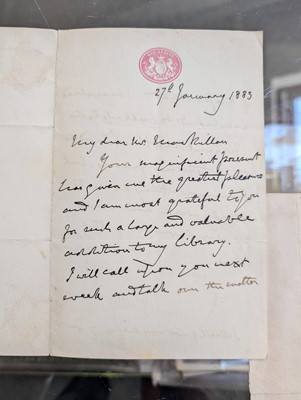 27th January 1883
My dear Mr Macmillan
Your magnificent present
has given me the greatest pleasure
and I am most grateful to you
for such a large and valuable
addition to my library.
I will call upon you next
week and talk over the matter